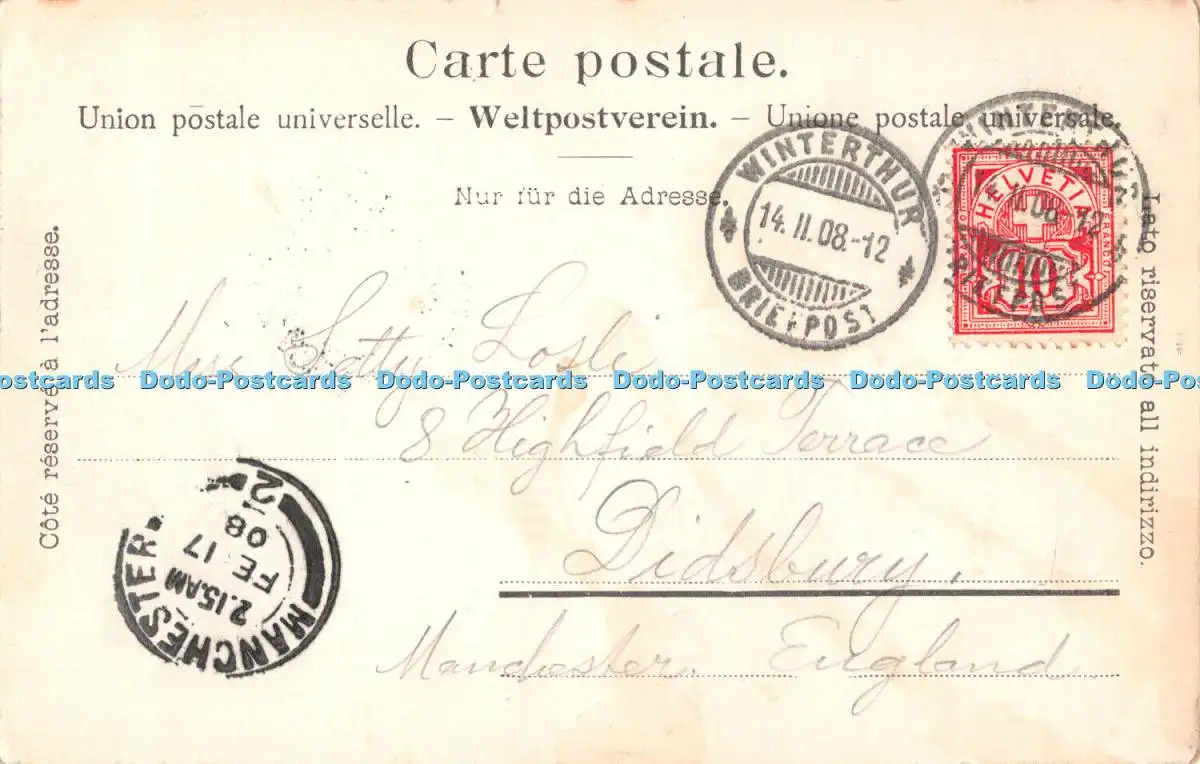 Carte postale.
Union postale universelle. – Weltpostverein. – Unione postale universale.
Nur für die Adresse.
Côté réservé à l'adresse.
Lato riservato all indirizzo.
WINTERTHUR
14. II. 08.-12
BRIEFPOST
WINTERTHUR
08.-12
BRIEFPOST
HELVETIA
FRANCO
10
Dodo-Postcards Dodo-Postcards Dodo-Postcards Dodo-Postcards Dodo-Postcards
8 Highfield Terrace
Didsbury.
Manchester. England
MANCHESTER
2.15.AM
FE 17
08
2